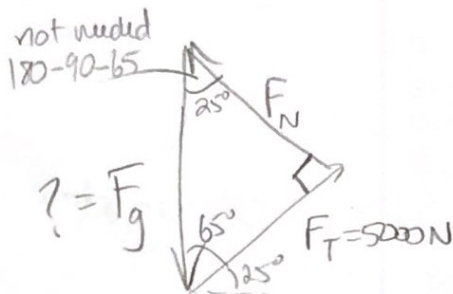 not needed
180-90-65
25°
F_N
? = F_g
65°
F_T = 5000N
25°